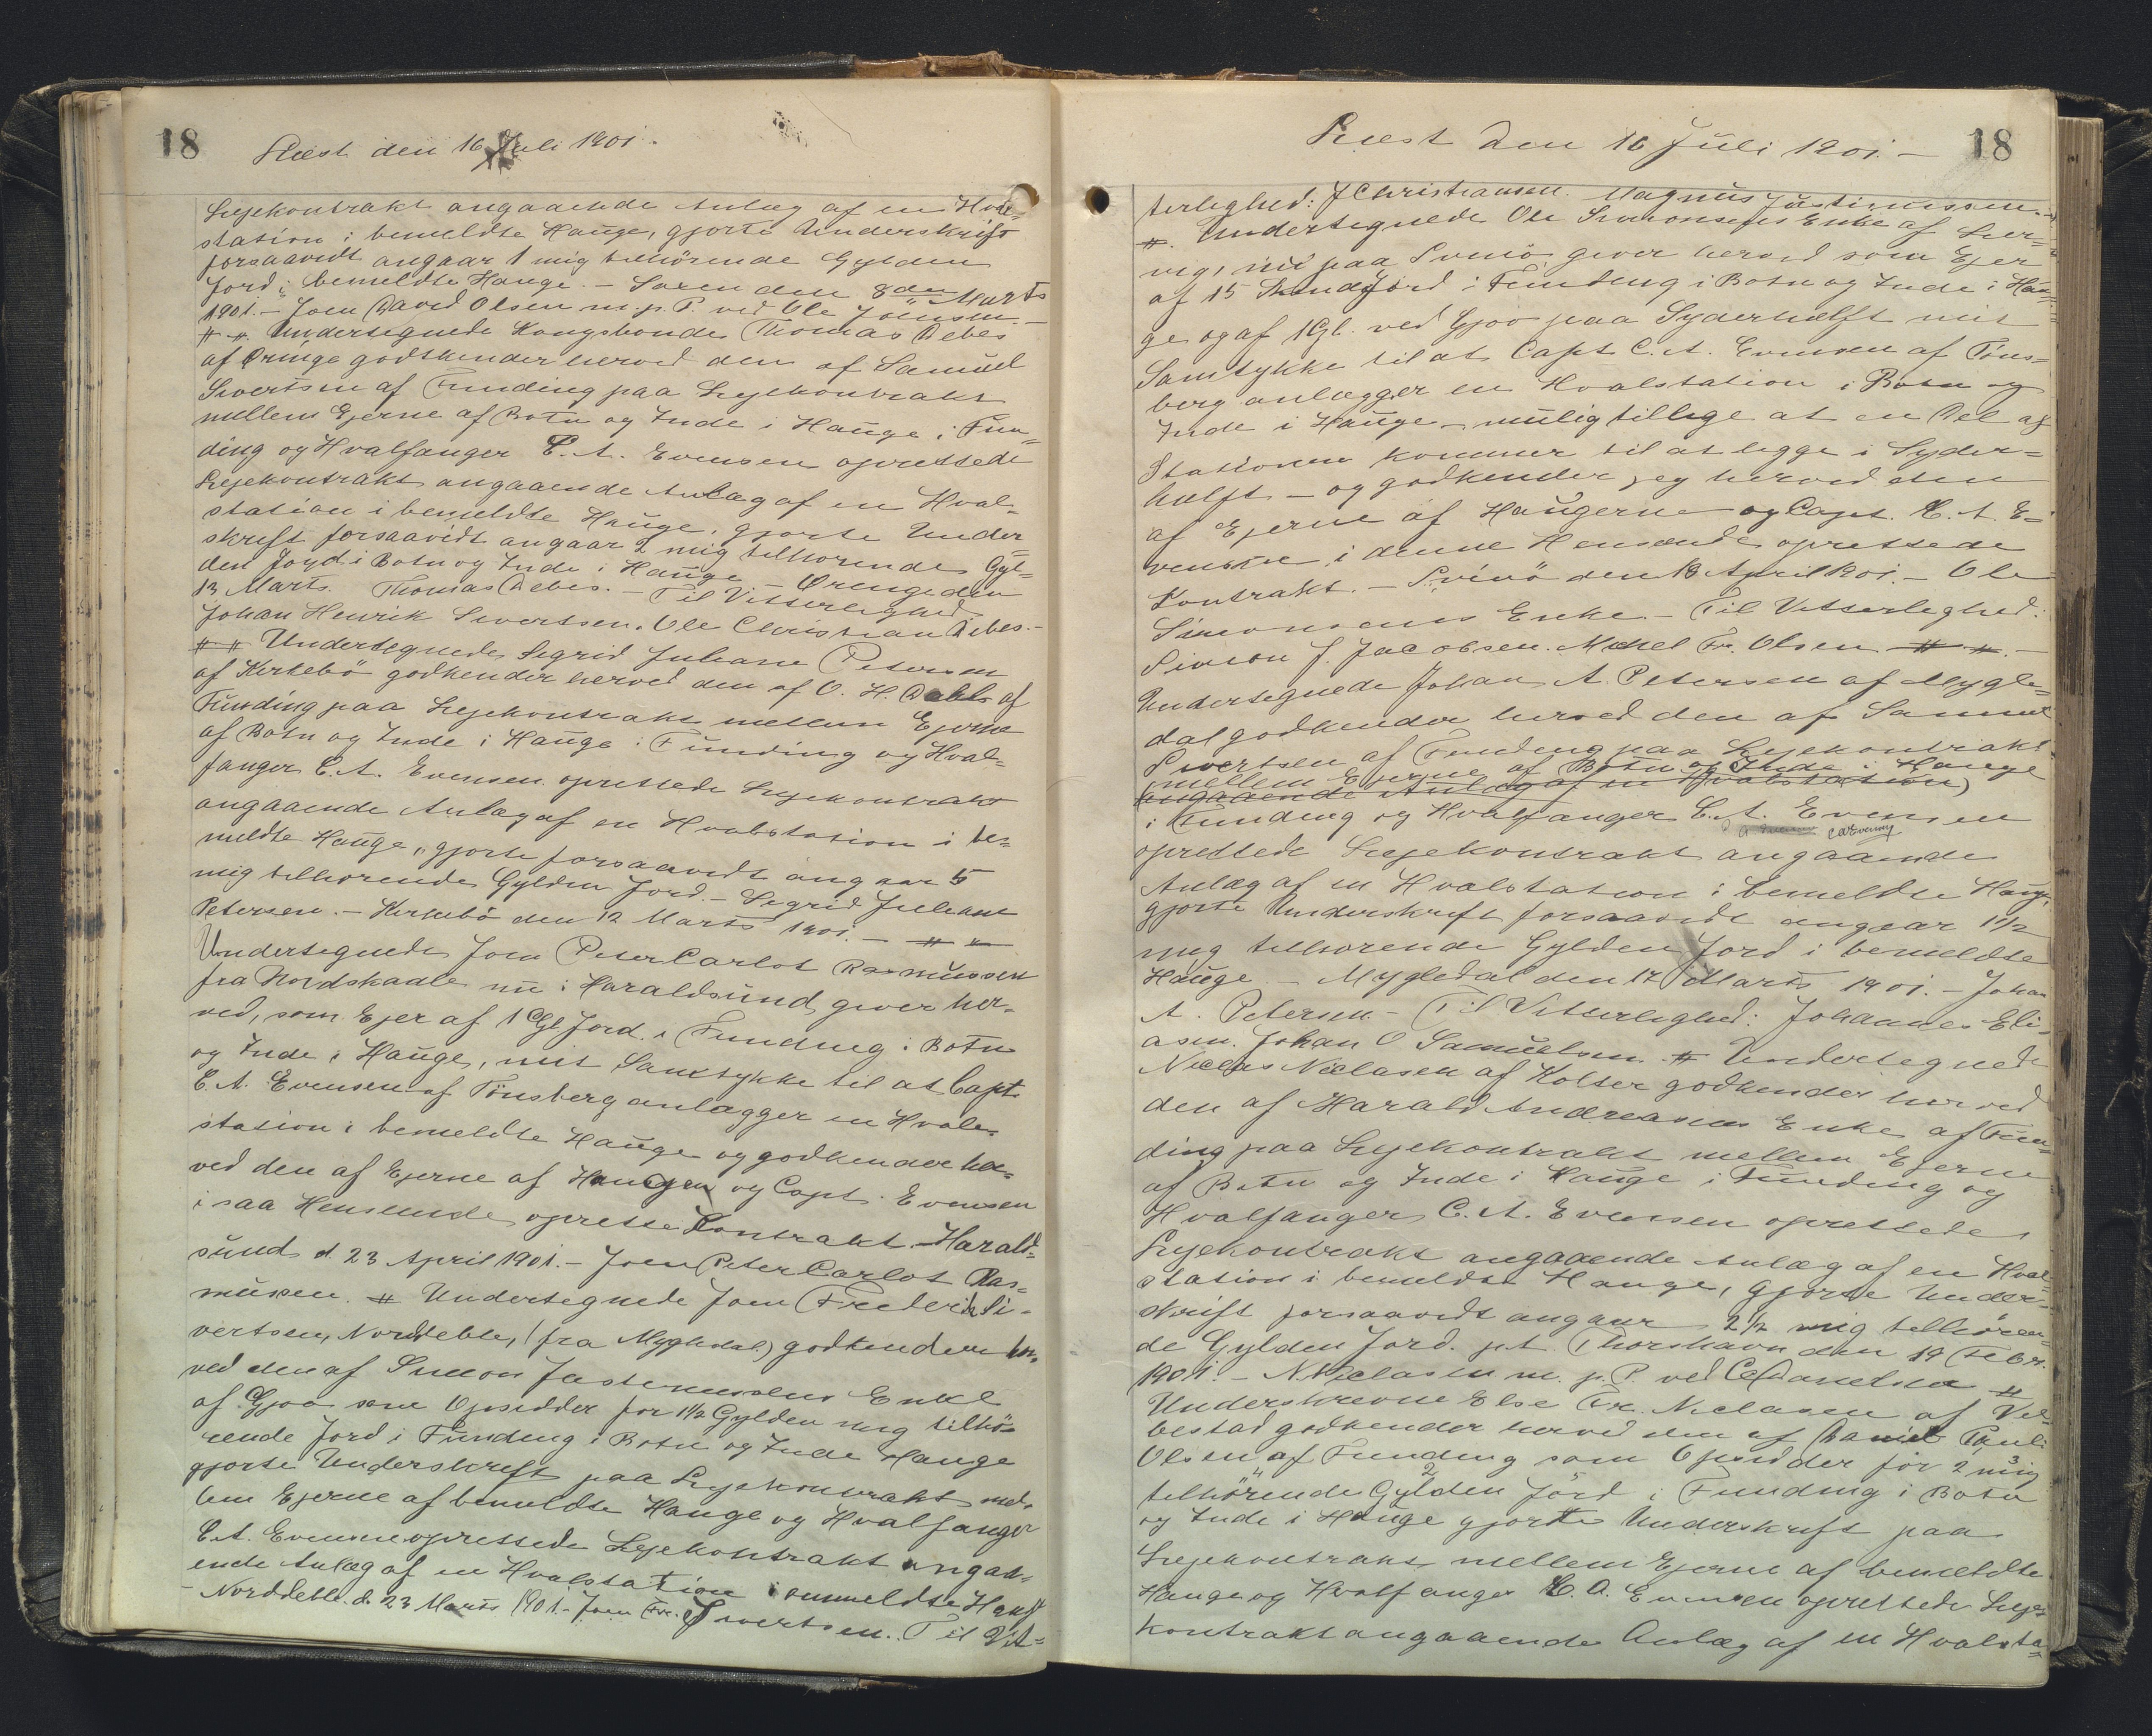 18
Læst den 16 Juli 1901.
Lejekontrakt angaaende Anlæg af en Hval-
station i bemeldte Hauge, gjorte Underskrift
forsaavidt angaar 1 mig tilhörende Gylden
Jord i bemeldte Hauge. - den 8den Marts
1901. - Joen David Olsen m. p. P. ved Ole Joensen. -
# #. Undertegnede Kongsbonde Thomas Debes
af Öringe godkender herved den af Samuel
Sivertsen af Funding paa Lejekontrakt
mellem Ejerne af Botn og Inde i Hauge i Fun-
ding og Hvalfanger C. A. Evensen oprettede
Lejekontrakt angaaende Anlæg af en Hval-
station i bemeldte Hauge, gjorte Under
skrift forsaavidt angaar 2 mig tilhorende Gyl-
den Jord i Botn og Inde i Hauge - Örenge den
13 Marts. Thomas Debes. - Til Vitterlighed
Johan Henrik Sivertsen. Ole Christian Debes. -
# # Undertegnede Sigrid Juliane Petersen
af Kirkebö godkender herved den af O. H. Dahl af
Funding paa Lejekontrakt mellem Ejerne
af Botn og Inde i Hauge i Funding og Hval-
fanger C. A. Evensen oprettede Lejekontrakt
angaaende Anlæg af en Hvalstation i be-
meldte Hauge, gjorte forsaavidt angaar 5
mig tilhorende Gylden Jord. - Sigrid Juliane
Petersen. - Kirkebö den 12 Marts 1901. - # #
Undertegnede Joen Peter Carlot Rasmussen
fra Nordskaale nu i Haraldsund giver her-
ved, som Ejer af 1 Gl Jord i Funding i Botn
og Inde i Hauge, mit Samtykke til at Capt.
C. A. Evensen af Tönsberg anlægger en Hval-
station i bemeldte Hauge og godkender her-
ved den af Ejerne af Haugen og Capt. Evensen
i saa Henseende oprette Kontrakt. - Harald-
sund d. 23 April 1901. - Joen Peter Carlot Ras-
mussen. # Undertegnede Joen Frederik Si-
vertsen, Norddeble, (fra Mygledal) godkender her-
ved den af Simon Justinussens Enke
af Gjoo som Opsidder for 1 1/2 Gylden mig tilhö-
rende Jord i Funding i Botn og Inde Hauge
gjorte Underskrift paa Lejekontrakt mel-
lem Ejerne af bemeldte Hauge og Hvalfanger
C. A. Evensen oprettede Lejekontrakt angaa-
ende Anlæg af en Hvalstation i ommeldte Hauge
- Norddeble. d. 23 Marts 1901. - Joen Fr. Sivertsen. Til Vit-
Læst den 16 Juli 1901. -
18
terlighed: J Christiansen. Magnus Justinussen. -
#. Undertegnede Ole Simonsens Enke af Ler-
vig, nu paa Svinö giver herved som Ejer
af 15 Skind Jord i Funding i Botn og Inde i Hau-
ge og af 1 Gl. ved Gjoo paa Syderhælft mit
Samtykke til at Capt C. A. Evensen af Töns-
berg anlægger en Hvalstation i Botn og
Inde i Hauge - mulig tillige at en Del af
Stationen kommer til at ligge i Syder-
hælft - og godkender jeg herved den
af Ejerne af Haugerne og Capt. C. A. E-
vensen i denne Henseende oprettede
Kontrakt. - Svinö den 18 April 1901. - Ole
Simonsens Enke - Til Vitterlighed:
Simon J. Jacobsen. Mikkel Fr. Olsen # #. -
Undertegnede Johan A. Petersen af Mygle-
dal godkender herved den af Samuel
Sivertsen af Funding paa Lejekontrakt
mellem Ejerne af Botn og Inde i Hauge
(angaaende Anlæg af en Hvalstation)
i Funding og Hvalfanger C. A. Evensen
C A Evensen
oprettede Lejekontrakt angaaende
Anlæg af en Hvalstation i bemeldte Hauge,
gjorte Underskrift forsaavidt angaar 1 1/2
mig tilhorende Gylden Jord i bemeldte
Hauge. - Mygledal den 12 Marts 1901. - Johan
A. Petersen. - Til Vitterlighed: Johannes Eli-
asen. Johan O Samuelsen. # Undertegnede
Niclas Niclasen af Kolter godkender herved
den af Harald Andreasens Enke af Fun-
ding paa Lejekontrakt mellem Ejerne
af Botn og Inde i Hauge i Funding og
Hvalfanger C. A. Evensen oprettede
Lejekontrakt angaaende Anlæg af en Hval-
station i bemeldte Hauge, gjorte Under-
skrift forsaavidt angaar 2 1/2 mig tilhören-
de Gylden Jord. p. t. Thorshavn den 19 Febr.
1901. - N. Niclasen m. p. P. ved #
Underskrevne Else Fr. Niclasen af Vel-
bestad godkender herved den af Daniel Pauli
Olsen af Funding som Opsidder for 2 mig
tilhörende 2 Gylden Jord i Funding i Botn
og Inde i Hauge gjorte Underskrift paa
Lejekontrakt mellem Ejerne af bemeldte
Hauge og Hvalfanger C. A. Evensen oprettede Leje-
kontrakt angaaende Anlæg af en Hvalsta-